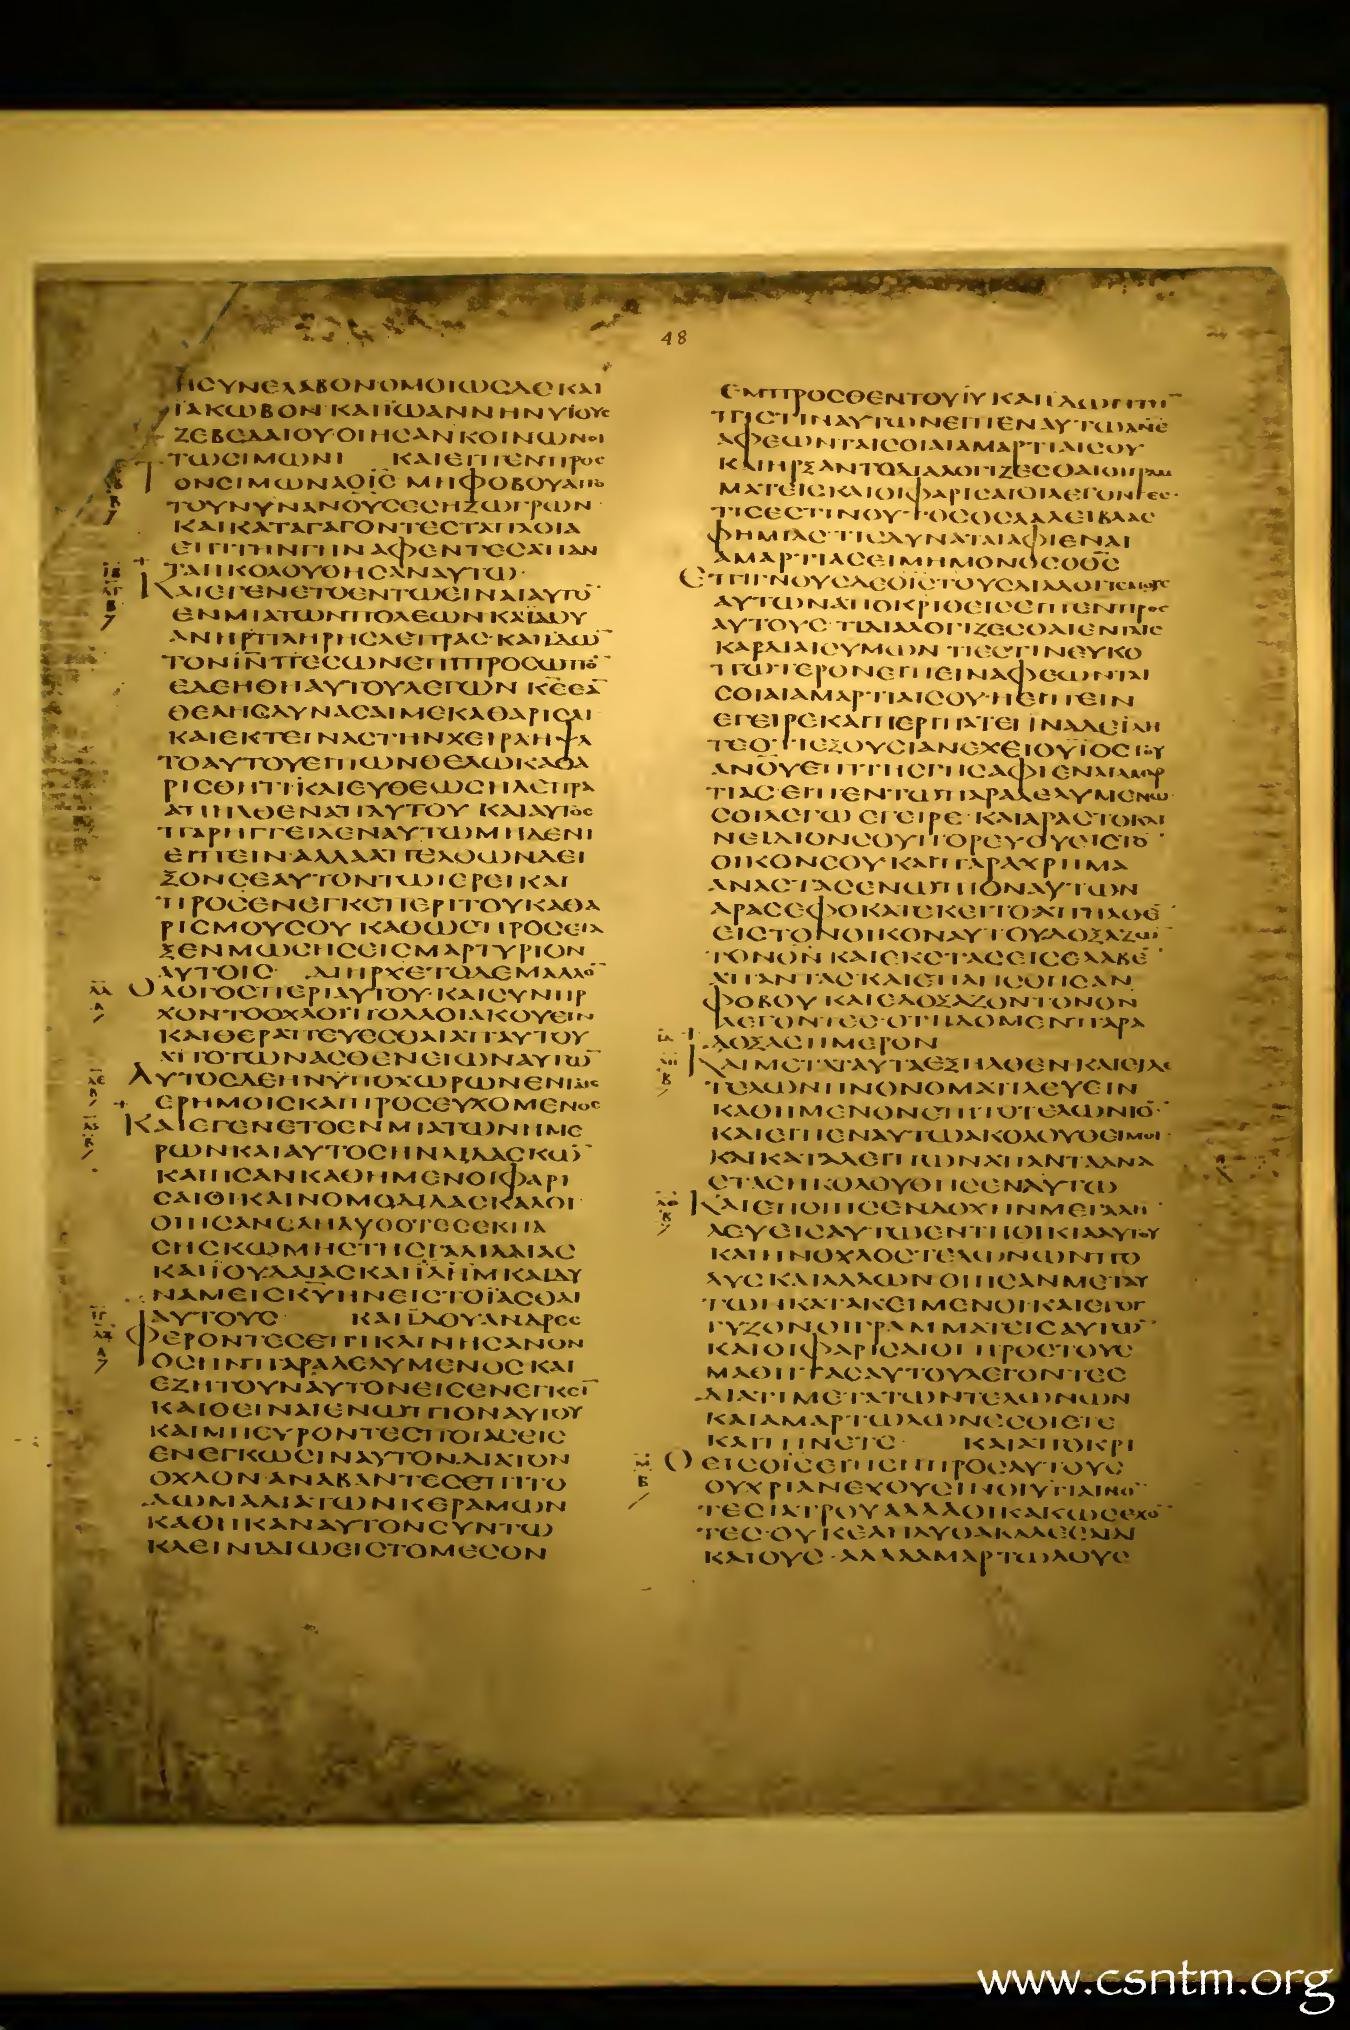 48
ΗϹΥΝΕΛΑΒΟΝΟΜΟΙΩϹΔΕΚΑΙ
ΪΑΚΩΒΟΝ·ΚΑΙΪΩΑΝΝΗΝΥΪΟΥϹ
ΖΕΒΕΔΑΙΟΥ·ΟΙΗϹΑΝΚΟΙΝΩΝΟΙ
ΤΩϹΙΜΩΝΙ ΚΑΙΕΙΠΕΝΠΡΟϹ
ΟΝϹΙΜΩΝΑΟΙϹ ΜΗΦΟΒΟΥΑΠΟ
ΤΟΥΝΥΝΑΝΟΥϹΕϹΗΖΩΓΡΩΝ
ΚΑΙΚΑΤΑΓΑΓΟΝΤΕϹΤΑΠΛΟΙΑ
ΕΠΙΤΗΝΓΗΝΑΦΕΝΤΕϹΑΠΑΝ
ΤΑΗΚΟΛΟΥΘΗϹΑΝΑΥΤΩ·
ΚΑΙΕΓΕΝΕΤΟΕΝΤΩΕΙΝΑΙΑΥΤΟ̅
ΕΝΜΙΑΤΩΝΠΟΛΕΩΝΚΑΙΙΔΟΥ
ΑΝΗΡΠΛΗΡΗϹΛΕΠΡΑϹ·ΚΑΙΪΔΩ̅
ΤΟΝΙΝ̅ΠΕϹΩΝΕΠΙΠΡΟϹΩΠΟ̅
ΕΔΕΗΘΗΑΥΤΟΥΛΕΓΩΝ ΚΕ̅ΕΑ̅
ΘΕΛΗϹΔΥΝΑϹΑΙΜΕΚΑΘΑΡΙϹΑΙ
ΚΑΙΕΚΤΕΙΝΑϹΤΗΝΧΕΙΡΑΗΨΑ
ΤΟΑΥΤΟΥΕΙΠΩΝΘΕΛΩΚΑΘΑ
ΡΙϹΘΗΤΙΚΑΙΕΥΘΕΩϹΗΛΕΠΡΑ
ΑΠΗΛΘΕΝΑΠΑΥΤΟΥ ΚΑΙΑΥΤΟϹ
ΠΑΡΗΓΓΕΙΛΕΝΑΥΤΩΜΗΔΕΝΙ
ΕΙΠΕΙΝ·ΑΛΛΑΑΠΕΛΘΩΝΔΕΙ
ΞΟΝϹΕΑΥΤΟΝΤΩΙΕΡΕΙΚΑΙ
ΠΡΟϹΕΝΕΓΚΕΠΕΡΙΤΟΥΚΑΘΑ
ΡΙϹΜΟΥϹΟΥ ΚΑΘΩϹΠΡΟϹΕΤΑ
ΞΕΝΜΩϹΗϹΕΙϹΜΑΡΤΥΡΙΟΝ
ΑΥΤΟΙϹ· ΔΙΗΡΧΕΤΟΔΕΜΑΛΛΟ̅
ΟΛΟΓΟϹΠΕΡΙΑΥΤΟΥ·ΚΑΙϹΥΝΗΡ
ΧΟΝΤΟΟΧΛΟΙΠΟΛΛΟΙΑΚΟΥΕΙΝ
ΚΑΙΘΕΡΑΠΕΥΕϹΘΑΙΑΠΑΥΤΟΥ
ΑΠΟΤΩΝΑϹΘΕΝΕΙΩΝΑΥΤΩ̅
ΑΥΤΟϹΔΕΗΝΥΠΟΧΩΡΩΝΕΝΤΑΙϹ
ΕΡΗΜΟΙϹΚΑΙΠΡΟϹΕΥΧΟΜΕΝΟϹ
ΚΑΙΕΓΕΝΕΤΟΕΝΜΙΑΤΩΝΗΜΕ
ΡΩΝΚΑΙΑΥΤΟϹΗΝΔΙΔΑϹΚΩ̅
ΚΑΙΗϹΑΝΚΑΘΗΜΕΝΟΙΦΑΡΙ
ϹΑΙΟΙΚΑΙΝΟΜΟΔΙΔΑϹΚΑΛΟΙ
ΟΙΗϹΑΝϹΑΗΛΥΘΟΤΕϹΕΚΠΑ
ϹΗϹΚΩΜΗϹΤΗϹΓΑΛΙΛΑΙΑϹ
ΚΑΙΪΟΥΔΑΙΑϹΚΑΙΙΛΗΜΚΑΙΔΥ
ΝΑΜΕΙϹΚΥΗΝΕΙϹΤΟΪΑϹΘΑΙ
ΑΥΤΟΥϹ ΚΑΙΪΔΟΥΑΝΔΡΕϹ
ΦΕΡΟΝΤΕϹΕΠΙΚΛΙΝΗϹΑΝΟΝ
ΟϹΗΝΠΑΡΑΛΕΛΥΜΕΝΟϹΚΑΙ
ΕΖΗΤΟΥΝΑΥΤΟΝΕΙϹΕΝΕΓΚΕΙ̅
ΚΑΙΘΕΙΝΑΙΕΝΩΠΙΟΝΑΥΤΟΥ
ΚΑΙΜΗΕΥΡΟΝΤΕϹΠΟΙΑϹΕΙϹ
ΕΝΕΓΚΩϹΙΝΑΥΤΟΝΔΙΑΤΟΝ
ΟΧΛΟΝ·ΑΝΑΒΑΝΤΕϹΕΠΙΤΟ
ΔΩΜΑΔΙΑΤΩΝΚΕΡΑΜΩΝ
ΚΑΘΗΚΑΝΑΥΤΟΝϹΥΝΤΩ
ΚΛΕΙΝΙΔΙΩΕΙϹΤΟΜΕϹΟΝ
ΕΜΠΡΟϹΘΕΝΤΟΥΙΥ ΚΑΙΪΔΩΝΤΗ̅
ΠΙϹΤΙΝΑΥΤΩΝΕΙΠΕΝΑΥΤΩΑΝΕ̅
ΑΦΕΩΝΤΑΙϹΟΙΑΙΑΜΑΡΤΙΑΙϹΟΥ
ΚΑΙΗΡΞΑΝΤΟΔΙΑΛΟΓΙΖΕϹΘΑΙΟΙΓΡΑΜ
ΜΑΤΕΙϹΚΑΙΟΙΦΑΡΙϹΑΙΟΙΛΕΓΟΝΤΕϹ·
ΤΙϹΕϹΤΙΝΟΥΤΟϹΟϹΛΑΛΕΙΒΛΑϹ
ΦΗΜΙΑϹ·ΤΙϹΔΥΝΑΤΑΙΑΦΙΕΝΑΙ
ΑΜΑΡΤΙΑϹΕΙΜΗΜΟΝΟϹΟΘϹ̅
ΕΠΙΓΝΟΥϹΔΕΟΙϹΤΟΥϹΔΙΑΛΟΓΙϹΜΟΥϹ
ΑΥΤΩΝΑΠΟΚΡΙΘΕΙϹΕΙΠΕΝΠΡΟϹ
ΑΥΤΟΥϹ·ΤΙΔΙΑΛΟΓΙΖΕϹΘΑΙΕΝΤΑΙϹ
ΚΑΡΔΙΑΙϹΥΜΩΝ ΤΙΕϹΤΙΝΕΥΚΟ
ΠΩΤΕΡΟΝΕΙΠΕΙΝΑΦΕΩΝΤΑΙ
ϹΟΙΑΙΑΜΑΡΤΙΑΙϹΟΥ·ΗΕΙΠΕΙΝ
ΕΓΕΙΡΕΚΑΙΠΕΡΙΠΑΤΕΙ ΙΝΑΔΕΙΔΗ
ΤΕΟΤΙΕΞΟΥϹΙΑΝΕΧΕΙΟΥΪΟϹΤΟΥ
ΑΝΟΥΕΠΙΤΗϹΓΗϹΑΦΙΕΝΑΙΑΜΑΡ
ΤΙΑϹ·ΕΙΠΕΝΤΩΠΑΡΑΛΕΛΥΜΕΝΩ·
ϹΟΙΛΕΓΩ ΕΓΕΙΡΕ·ΚΑΙΑΡΑϹΤΟΚΛΙ
ΝΕΙΔΙΟΝϹΟΥΠΟΡΕΥΟΥΕΙϹΤΟ̅
ΟΙΚΟΝϹΟΥ ΚΑΙΠΑΡΑΧΡΗΜΑ
ΑΝΑϹΤΑϹΕΝΩΠΙΟΝΑΥΤΩΝ
ΑΡΑϹΕΦΟΚΑΤΕΚΕΙΤΟΑΠΗΛΘΕ̅
ΕΙϹΤΟΝΟΙΚΟΝΑΥΤΟΥΔΟΞΑΖΩ̅
ΤΟΝΘΝ̅ ΚΑΙΕΚϹΤΑϹΕΙϹΕΛΑΒΕ̅
ΑΠΑΝΤΑϹΚΑΙΕΠΛΗϹΘΗϹΑΝ
ΦΟΒΟΥ ΚΑΙΕΔΟΞΑΖΟΝΤΟΝΘΝ
ΛΕΓΟΝΤΕϹ·ΟΤΙΙΔΟΜΕΝΠΑΡΑ
ΔΟΞΑϹΗΜΕΡΟΝ
ΚΑΙΜΕΤΑΤΑΥΤΑΕΞΗΛΘΕΝ·ΚΑΙΕΙΔΕ
ΤΕΛΩΝΗΝΟΝΟΜΑΤΙΛΕΥΕΙΝ
ΚΑΘΗΜΕΝΟΝΕΠΙΤΟΤΕΛΩΝΙΟ̅·
ΚΑΙΕΙΠΕΝΑΥΤΩΑΚΟΛΟΥΘΕΙΜΟΙ·
ΚΑΙΚΑΤΑΛΕΙΠΩΝΑΠΑΝΤΑΑΝΑ
ϹΤΑϹΗΚΟΛΟΥΘΗϹΕΝΑΥΤΩ
ΚΑΙΕΠΟΙΗϹΕΝΔΟΧΗΝΜΕΓΑΛΗ̅
ΛΕΥΕΙϹΑΥΤΩΕΝΤΗΟΙΚΙΑΑΥΤΟΥ
ΚΑΙΗΝΟΧΛΟϹΤΕΛΩΝΩΝΠΟ
ΛΥϹ ΚΑΙΑΛΛΩΝΟΙΗϹΑΝΜΕΤΑΥ
ΤΩΗΚΑΤΑΚΕΙΜΕΝΟΙ·ΚΑΙΕΓΟΓ
ΓΥΖΟΝΟΙΓΡΑΜΜΑΤΕΙϹΑΥΤΩ̅
ΚΑΙΟΙΦΑΡΙϹΑΙΟΙ ΠΡΟϹΤΟΥϹ
ΜΑΘΗΤΑϹΑΥΤΟΥΛΕΓΟΝΤΕϹ
ΔΙΑΤΙΜΕΤΑΤΩΝΤΕΛΩΝΩΝ
ΚΑΙΑΜΑΡΤΩΛΩΝΕϹΘΙΕΤΕ
ΚΑΙΠΙΝΕΤΕ· ΚΑΙΑΠΟΚΡΙ
ΘΕΙϹΟΙϹΕΙΠΕΝΠΡΟϹΑΥΤΟΥϹ
ΟΥΧΡΙΑΝΕΧΟΥϹΙΝΟΙΥΓΙΑΙΝΟ̅
ΤΕϹΙΑΤΡΟΥΑΛΛΑΟΙΚΑΚΩϹΕΧΟ̅
ΤΕϹ·ΟΥΚΕΛΗΛΥΘΑΚΑΛΕϹΑΙΔΙ
ΚΑΙΟΥϹ·ΑΛΛΑΑΜΑΡΤΩΛΟΥϹ
www.csntm.org